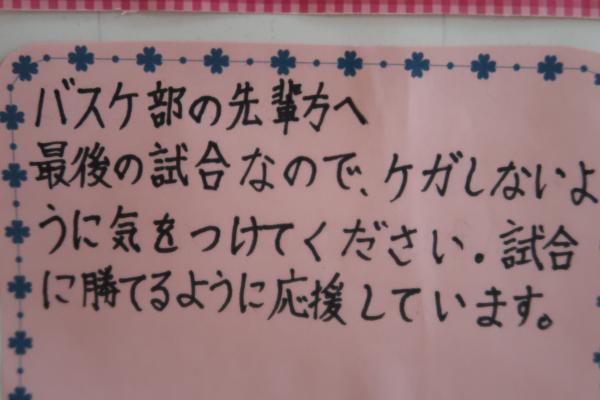 バスケ部の先輩方へ
最後の試合なので、ケガしないよ
うに気をつけてください。試合
に勝てるように応援しています。